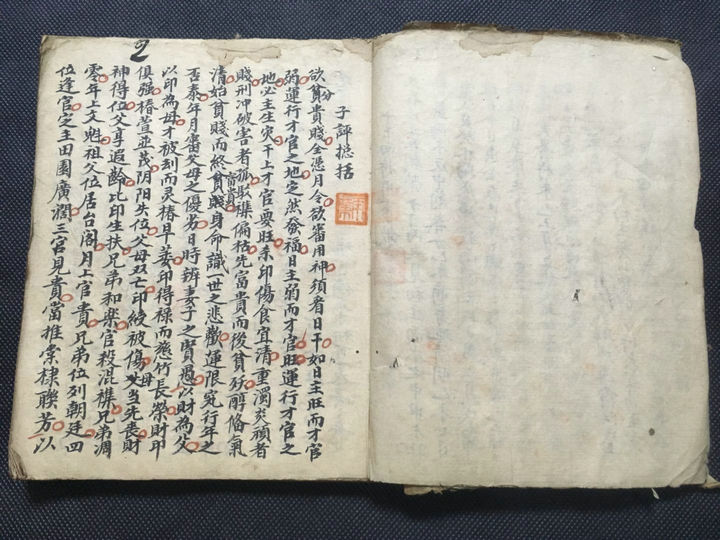 2
子評摠括
欲分貧貴賤全憑月令欲審用神須看日干如日主旺而才官
弱運行才官之地定然發福日主弱而才官旺運行才官之
地必主生灾干上才官要旺柔印傷食宜清重濁爻頑者
賤刑冲破害者孤駁襍偏枯先富貴而後貧殀醇俻氣
清始貧賤而終富貴身命識一世之悲歡運限究行年之
否泰年月審父母之優劣日時辨妻子之賢愚以財為父
以印為母才被刼而灵椿早萎印得禄而慈竹長榮財印
俱强椿萱並茂阴阳失位父母双亡印綬被傷母當先喪財
神得位父享遐齡比印生扶兄弟和樂官殺混襍兄弟凋
零年上文魁祖父位居台閣月上官貴兄弟位列朝廷四
位逢官定主田園廣濶三宫見貴當推棠棣聯芳以